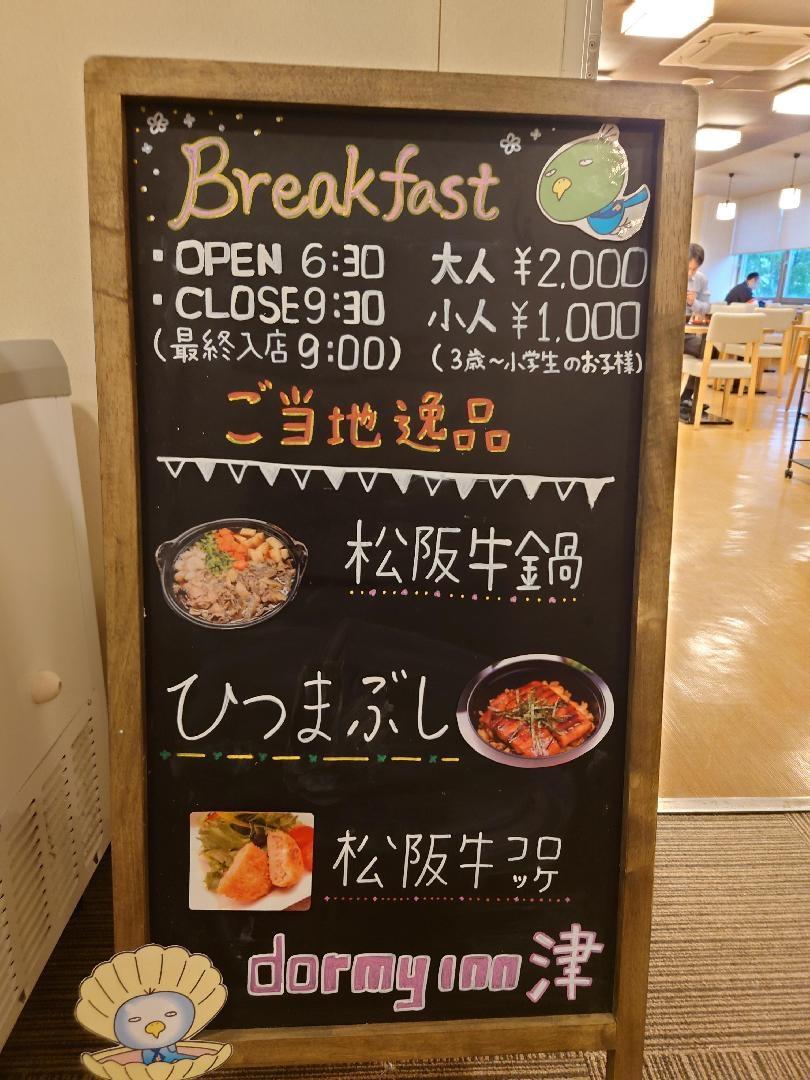 Breakfast
・OPEN 6:30 大人 ¥2,000
・CLOSE 9:30 小人 ¥1,000
(最終入店 9:00) (3歳～小学生のお子様)
ご当地逸品
松阪牛鍋
ひつまぶし
松阪牛コロッケ
dormy inn 津